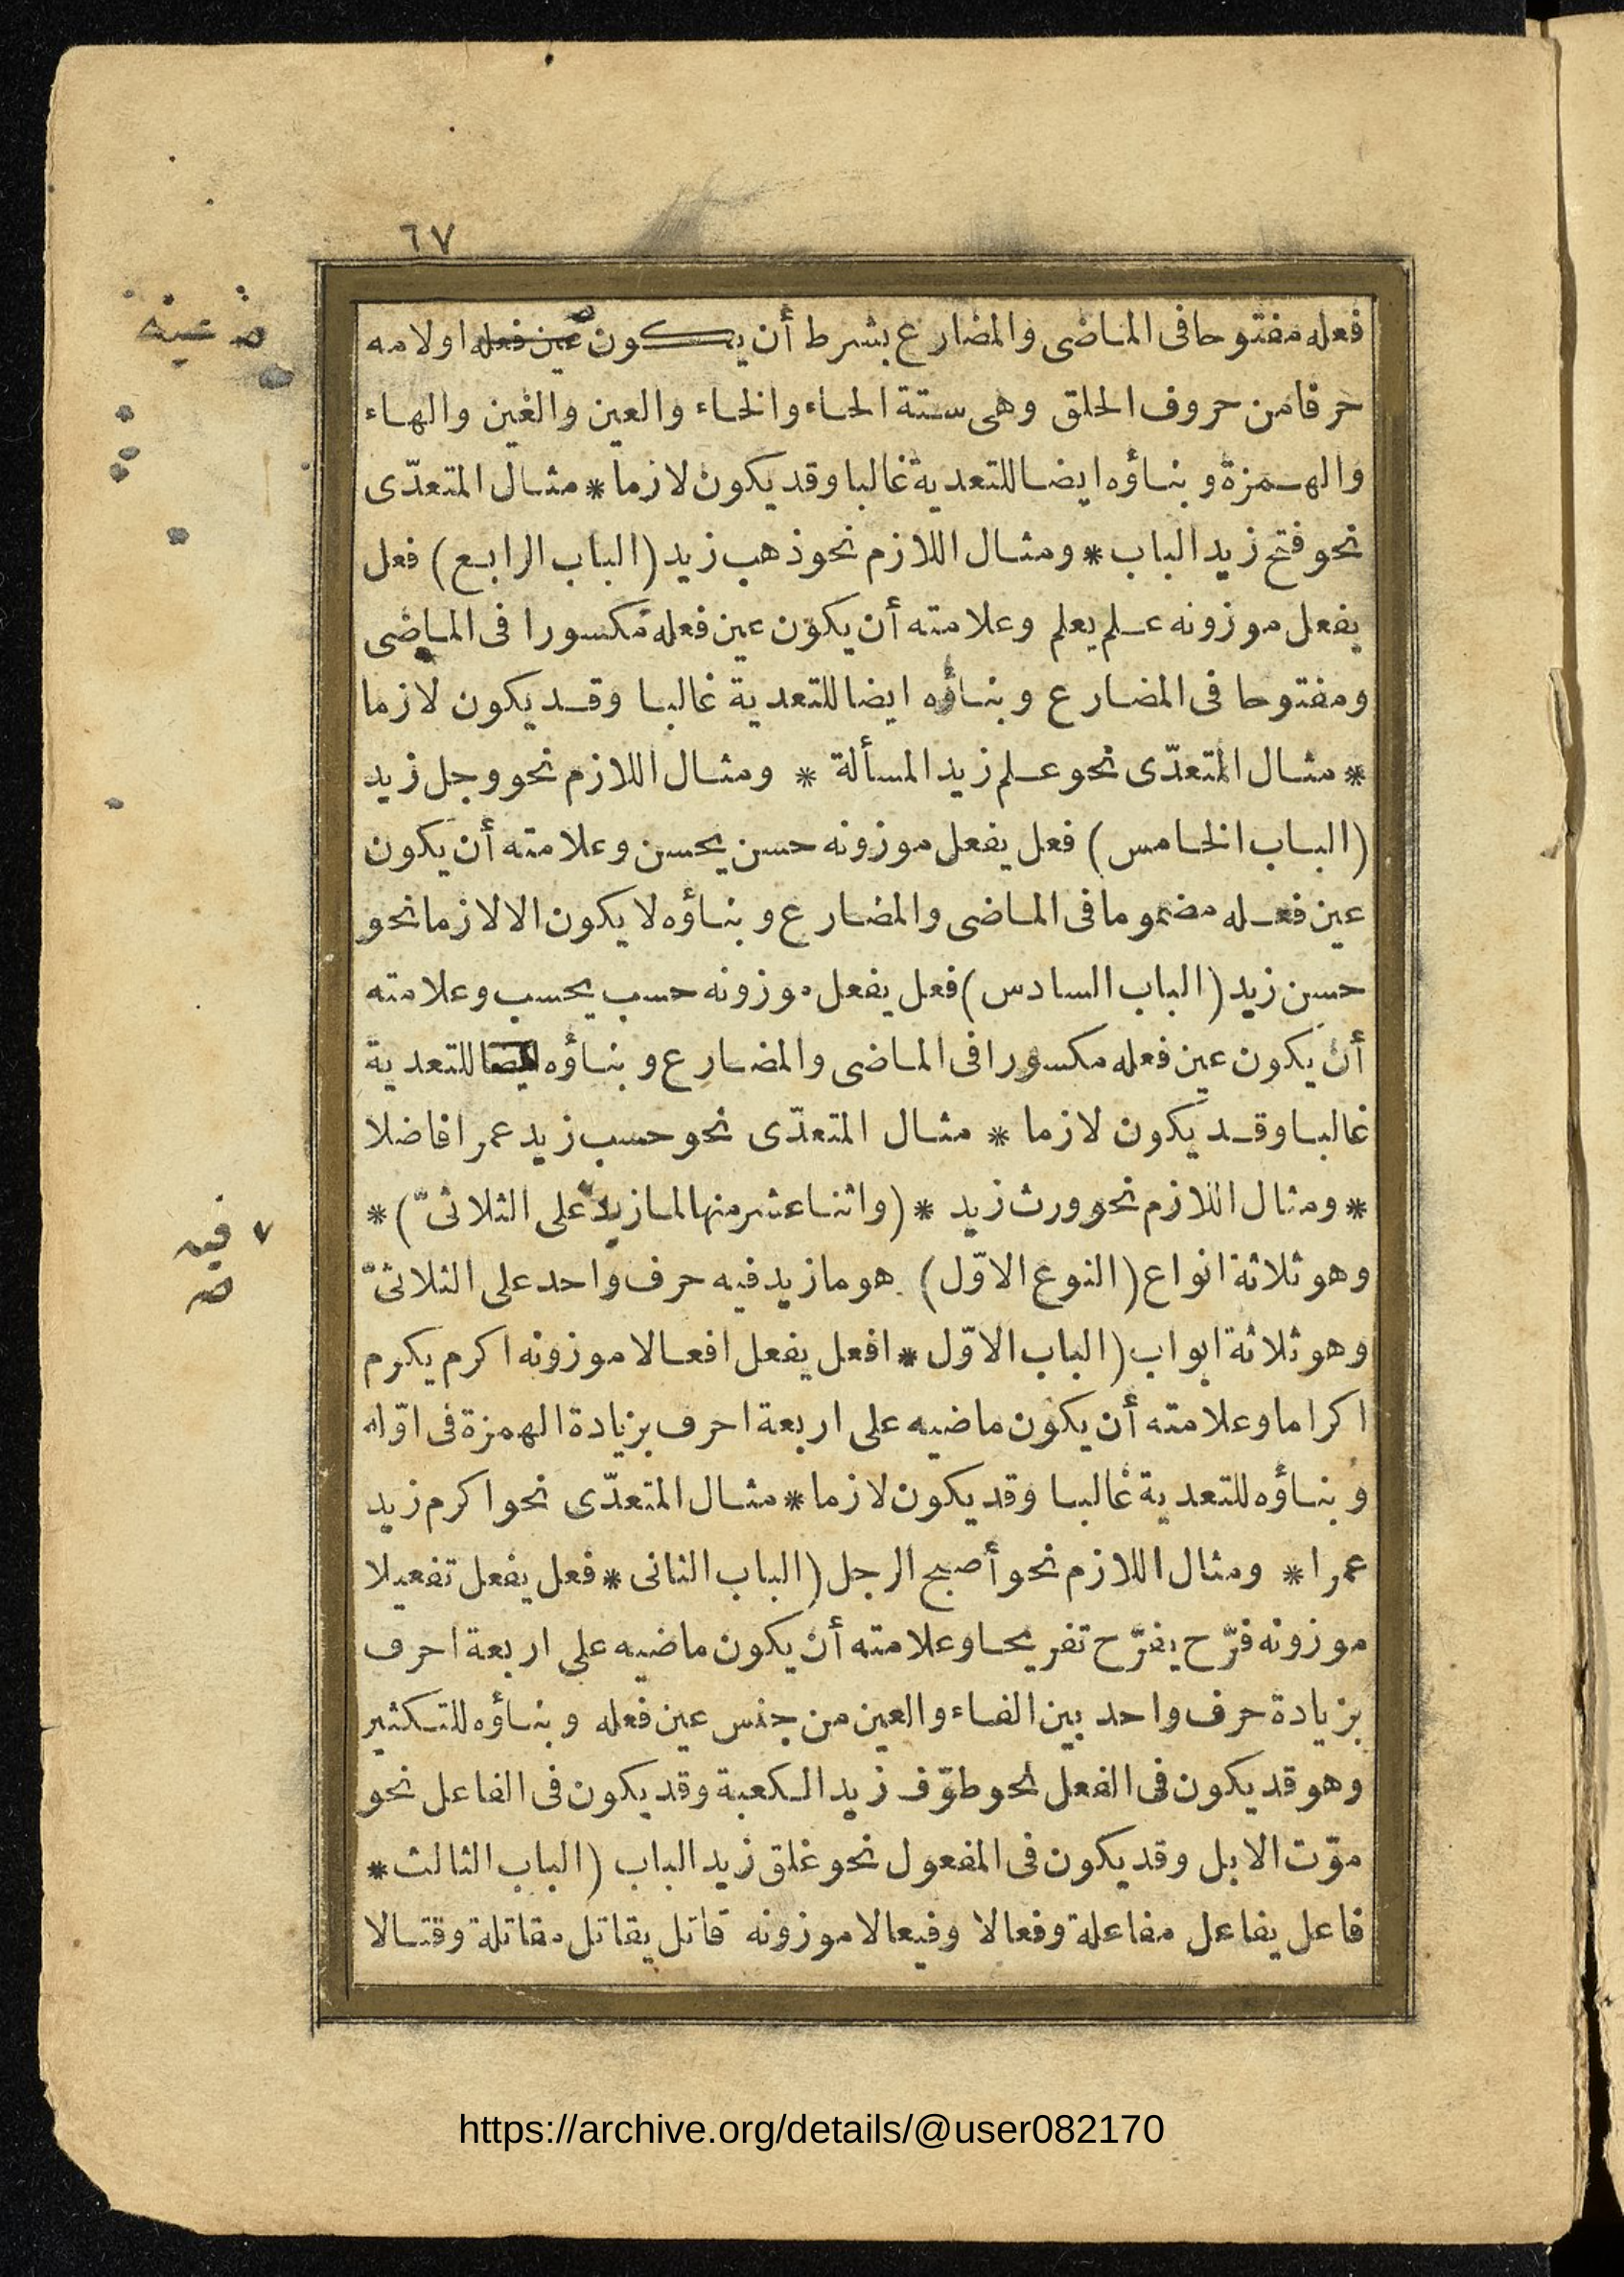 ٦٧
فعله مفتوحا فى الماضى والمضارع بشرط أن يكون عين فعله او لامه
عينه
حرفا من حروف الحلق وهى ستة الحاء والخاء والعين والغين والهاء
والهمزة وبناؤه ايضا للتعدية غالبا وقد يكون لازما * مثال المتعدّى
نحو فتح زيد الباب * ومثال اللازم نحو ذهب زيد (الباب الرابع) فعل
يفعل موزونه علم يعلم وعلامته أن يكون عين فعله مكسورا فى الماضى
ومفتوحا فى المضارع وبناؤه ايضا للتعدية غالبا وقد يكون لازما
* مثال المتعدّى نحو علم زيد المسألة * ومثال اللازم نحو وجل زيد
(الباب الخامس) فعل يفعل موزونه حسن يحسن وعلامته أن يكون
عين فعله مضموما فى الماضى والمضارع وبناؤه لا يكون الا لازما نحو
حسن زيد (الباب السادس) فعل يفعل موزونه حسب يحسب وعلامته
أن يكون عين فعله مكسورا فى الماضى والمضارع وبناؤه ايضا للتعدية
غالبا وقد يكون لازما * مثال المتعدّى نحو حسب زيد عمرا فاضلا
* ومثال اللازم نحو ورث زيد * (واثنا عشر منها لما زيد على الثلاثىّ) *
فيه
وهو ثلاثة انواع (النوع الاوّل) هو ما زيد فيه حرف واحد على الثلاثىّ
وهو ثلاثة ابواب (الباب الاوّل * افعل يفعل افعالا موزونه اكرم يكرم
اكراما وعلامته أن يكون ماضيه على اربعة احرف بزيادة الهمزة فى اوّله
وبناؤه للتعدية غالبا وقد يكون لازما * مثال المتعدّى نحو اكرم زيد
عمرا * ومثال اللازم نحو أصبح الرجل (الباب الثانى * فعل يفعل تفعيلا
موزونه فرّح يفرّح تفريحا وعلامته أن يكون ماضيه على اربعة احرف
بزيادة حرف واحد بين الفاء والعين من جنس عين فعله وبناؤه للتكثير
وهو قد يكون فى الفعل نحو طوّف زيد الكعبة وقد يكون فى الفاعل نحو
موّت الابل وقد يكون فى المفعول نحو غلق زيد الباب (الباب الثالث *
فاعل يفاعل مفاعلة وفعالا وفيعالا موزونه قاتل يقاتل مقاتلة وقتالا
https://archive.org/details/@user082170